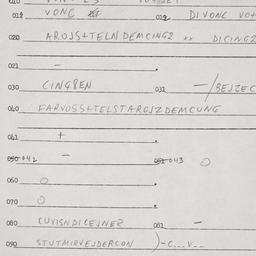 012 VONC 012 DIVONC VOT
020 AROJS+TELN DEMCING2 ** DICING2
021 -
030 CINGREN 031 -/BEJZEC
040 FARVOSS+TELSTAROJZDEMCUNG
041 +
050 042 - 051 043 O
060 O
070 O
080 CUVISNDICEJNE2 081 -
090 STUTMIRVEJDERCON )-C...V--